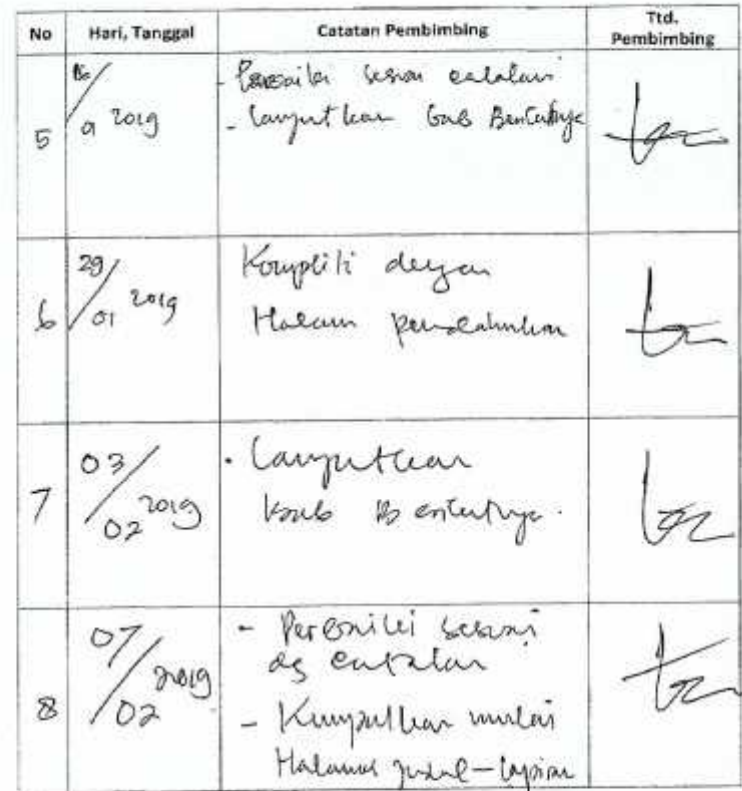 No Hari, Tanggal Catatan Pembimbing Ttd. Pembimbing
5 2019 - Perbaiki sesuai catatan
- lanjutkan bab Berikutnya
6 29/01 2019 Komplit dengan
Halaman pendahuluan
7 03/02 2019 - Lanjutkan
bab Berikutnya.
8 07/02 2019 - Perbaiki sesuai
dg catatan
- Kumpulkan mulai
Halaman judul - lapiran